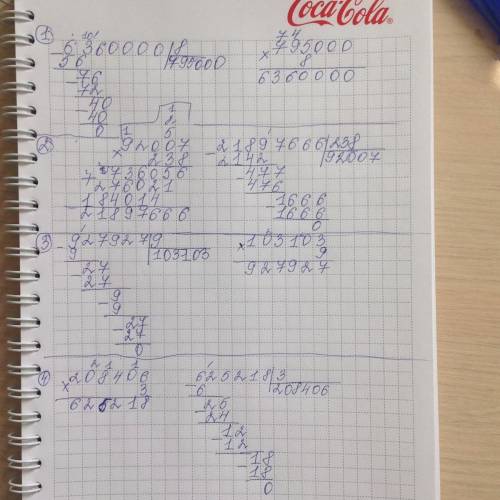 Coca-Cola®
1
6360000 | 8
56 795000
-76
72
-40
-40
0
74
795000
x 8
6360000
2
1
2
1 5
x 92007
238
+ 736056
276021
184014
21897666
-21897666 | 238
2142 92007
-477
476
-1666
1666
0
3
-927927 | 9
9 103103
-27
27
-9
9
-27
27
0
x 103103
9
927927
4
2 1 1
x 208406
3
625218
-625218 | 3
6 208406
-25
24
-12
12
-18
18
0